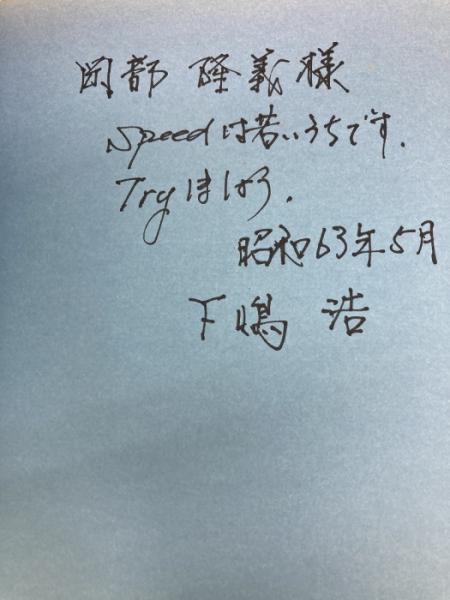 岡部 隆義様
Speedは若いうちです.
Tryましょう.
昭和63年5月
下嶋 浩